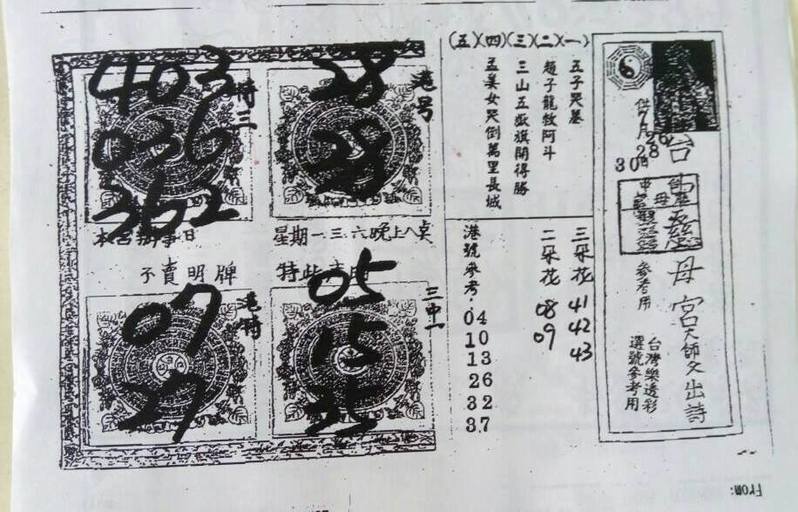 台
靈
母
宮
大師父出詩
供
7月
26
28
30
參考用
台灣樂透彩
選號參考用
(一)
五子哭墓
(二)
趙子龍救阿斗
(三)
三山五嶽旗開得勝
(四)
孟姜女哭倒萬里長城
(五)
三朵花 41
42
43
二朵花 08
09
港號參考:
04
10
13
26
32
37
港号
28
28
特三
403
036
362
星期一三六晚上八
不賣明牌
三中一
05
15
35
港特
07
27
From: